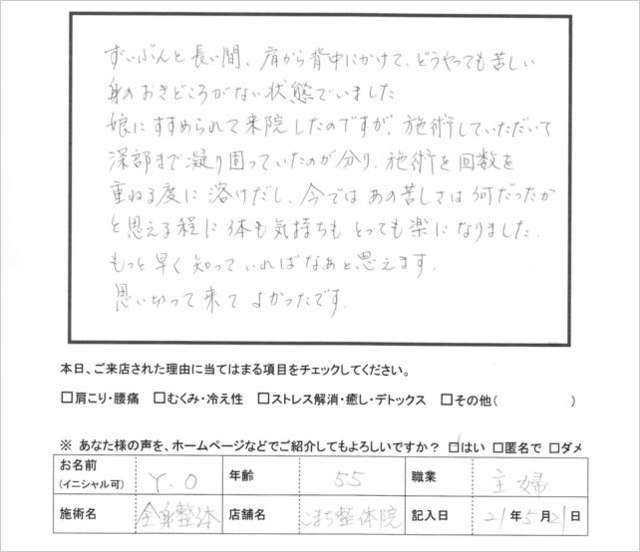 ずいぶんと長い間、肩から背中にかけて、どうやっても苦しい
身のおきどころがない状態でいました
娘にすすめられて来院したのですが、施術していただいて
深部まで凝り固っていたのが分り、施術を回数を
重ねる度に溶けだし、今ではあの苦しさは何だったか
と思える程に体も気持ちもとっても楽になりました.
もっと早く知っていればなぁと思えます.
思い切って来てよかったです.
本日、ご来店された理由に当てはまる項目をチェックしてください。
□肩こり・腰痛 □むくみ・冷え性 □ストレス解消・癒し・デトックス □その他( )
※ あなた様の声を、ホームページなどでご紹介してもよろしいですか? □はい □匿名で □ダメ
お名前 (イニシャル可) Y.O 年齢 55 職業 主婦
施術名 全身整体 店舗名 こまち整体院 記入日 21年5月21日